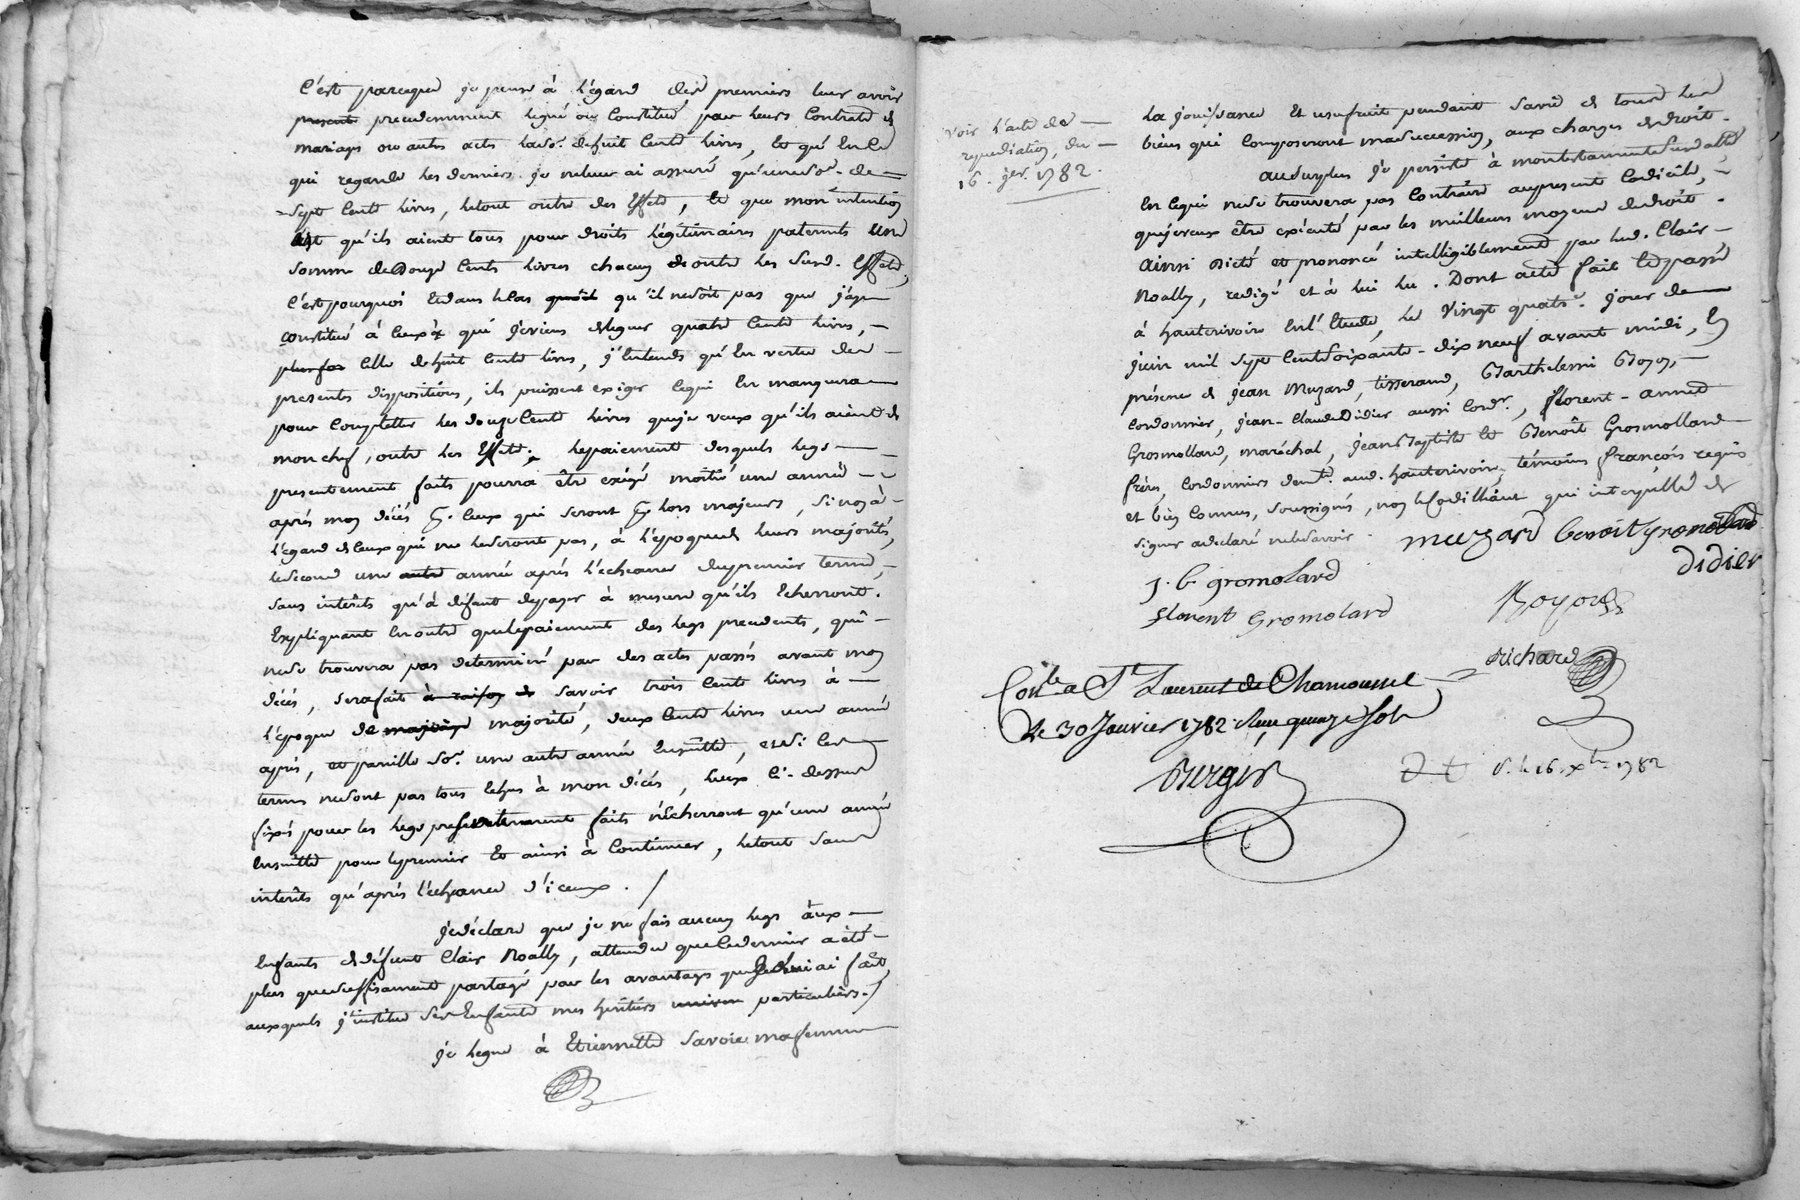 C'est parceque je pense à l'égard des premiers leur avoir
presente precedemment legué ou Constitué par leurs Contrats de
mariage ou autres actes lade. so. de huit Cents livres, Et qu'En ce
qui regarde les derniers je ne leur ai assuré qu'une so. de
Sept Cents livres, le tout outre des Effets, Et que mon intention
Est qu'ils aient tous pour droits légitimaires paternels une
somme de Douze Cents livres chacun outre les Susd. Effets,
C'est pourquoi Et dans le Cas qu'il ne soit pas que j'aye
constitué à Ceux à qui je viens de leguer quatre Cents livres,
plus for Celle de huit Cents livres, j'Entends qu'En vertu des
presentes dispositions, ils puissent exiger Ce qui En manquera
pour Completter les douze Cents livres que je veux qu'ils aient de
mon chef, outre les Effets, le paiement desquels legs
presentement faits pourra être exigé moitié une année
après mon décés pr. Ceux qui seront pr. lors majeurs, Si non à
l'égard de Ceux qui ne le seront pas, à l'époque de leurs majorités,
le second une autre année après l'écheance du premier terme,
sans interêts qu'à défaut de payer à mesure qu'ils Echerront.
Expliquant En outre que le paiement des legs precedents, qui
ne se trouvera pas determiné par des actes passés avant mon
décés, sera fait à raison de savoir trois Cents livres à
l'époque de majorité majorité, deux Cents livres une année
après, et pareille So. une autre année Ensuitte, et Si les
termes ne sont pas tous Echus à mon décés, Ceux Ci-dessus
fixés pour les legs presentement faits n'écherront qu'une année
Ensuitte pour le premier Et ainsi à Continuer, le tout sans
interêts qu'après l'écheance d'iceux. /
Je déclare que je ne fais aucun legs aux
Enfants de défunt Clair Noally, attendu que Ce dernier a été
plus que suffisamment partagé par les avantages que je lui ai fait,
auxquels j'institue Ses Enfants mes héritiers particuliers. /
Je legue à Etiennette Savoie ma femme
Voir l'acte de
repudiation, du
16. jer. 1782.
La jouissance Et usufruit pendant Sa vie de tous les
biens qui Composeront ma succession, aux charges de droit.
Au surplus Je persiste à mon testament Susdatté
En Ce qui ne se trouvera pas Contraire au present Codicile,
que je veux être exécuté par les meilleurs moyens de droit.
Ainsi dicté et prononcé intelligiblement par led. Clair
Noally, redigé et à lui lu. Dont acte fait Et passé
à hauterivoire En l'Etude, le Vingt quatre. jour de
Juin mil Sept Cent Soixante-dix neuf avant midi, En
présence de Jean Muzard, tisserand, Barthelemi Boyon,
Cordonnier, Jean-Claude Didier aussi Cordr., florent-anne
Grosmolland, maréchal, Jean Baptiste Et Benoît Grosmolland
frères, Cordonniers demts. aud. hauterivoire, témoins françois requis
et bien Connus, soussignés, non le Codicillant qui interpellé de
signer a declaré ne le savoir.
muzard benoit gromolard
didier
J. b. gromolard
florent Gromolard
Boyon
Richard
Conlé a St Laurent de Chamousset
Le 30 Janvier 1782 Reçu quinze sols
Berger
16. Xbre 1782